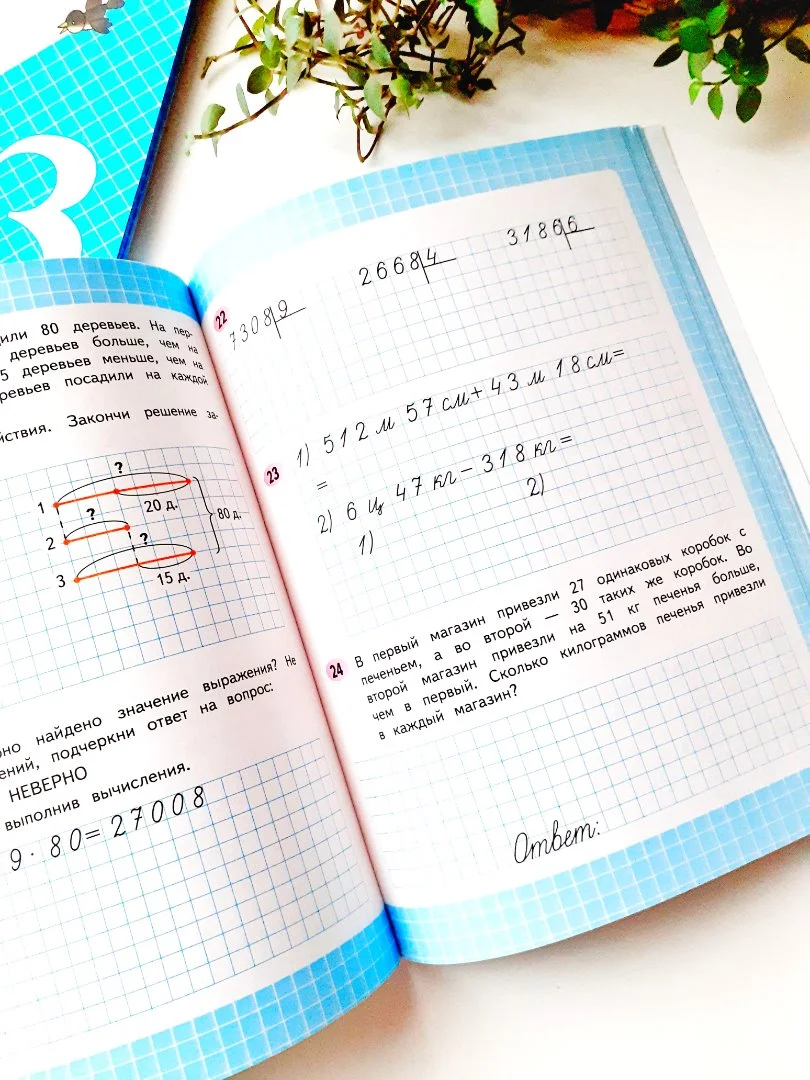 3
дили 80 деревьев. На пер-
деревьев больше, чем на
5 деревьев меньше, чем на
ревьев посадили на каждой
йствия. Закончи решение за-
?
1
20 д.
?
80 д.
2
?
3
15 д.
но найдено значение выражения? Не
ений, подчеркни ответ на вопрос:
НЕВЕРНО
выполнив вычисления.
9 · 80 = 27008
22
7308 9
2668 4
3186 6
23
1) 512 м 57 см + 43 м 18 см =
=
2) 6 ц 47 кг − 318 кг =
1)
2)
24
В первый магазин привезли 27 одинаковых коробок с
печеньем, а во второй — 30 таких же коробок. Во
второй магазин привезли на 51 кг печенья больше,
чем в первый. Сколько килограммов печенья привезли
в каждый магазин?
Ответ: